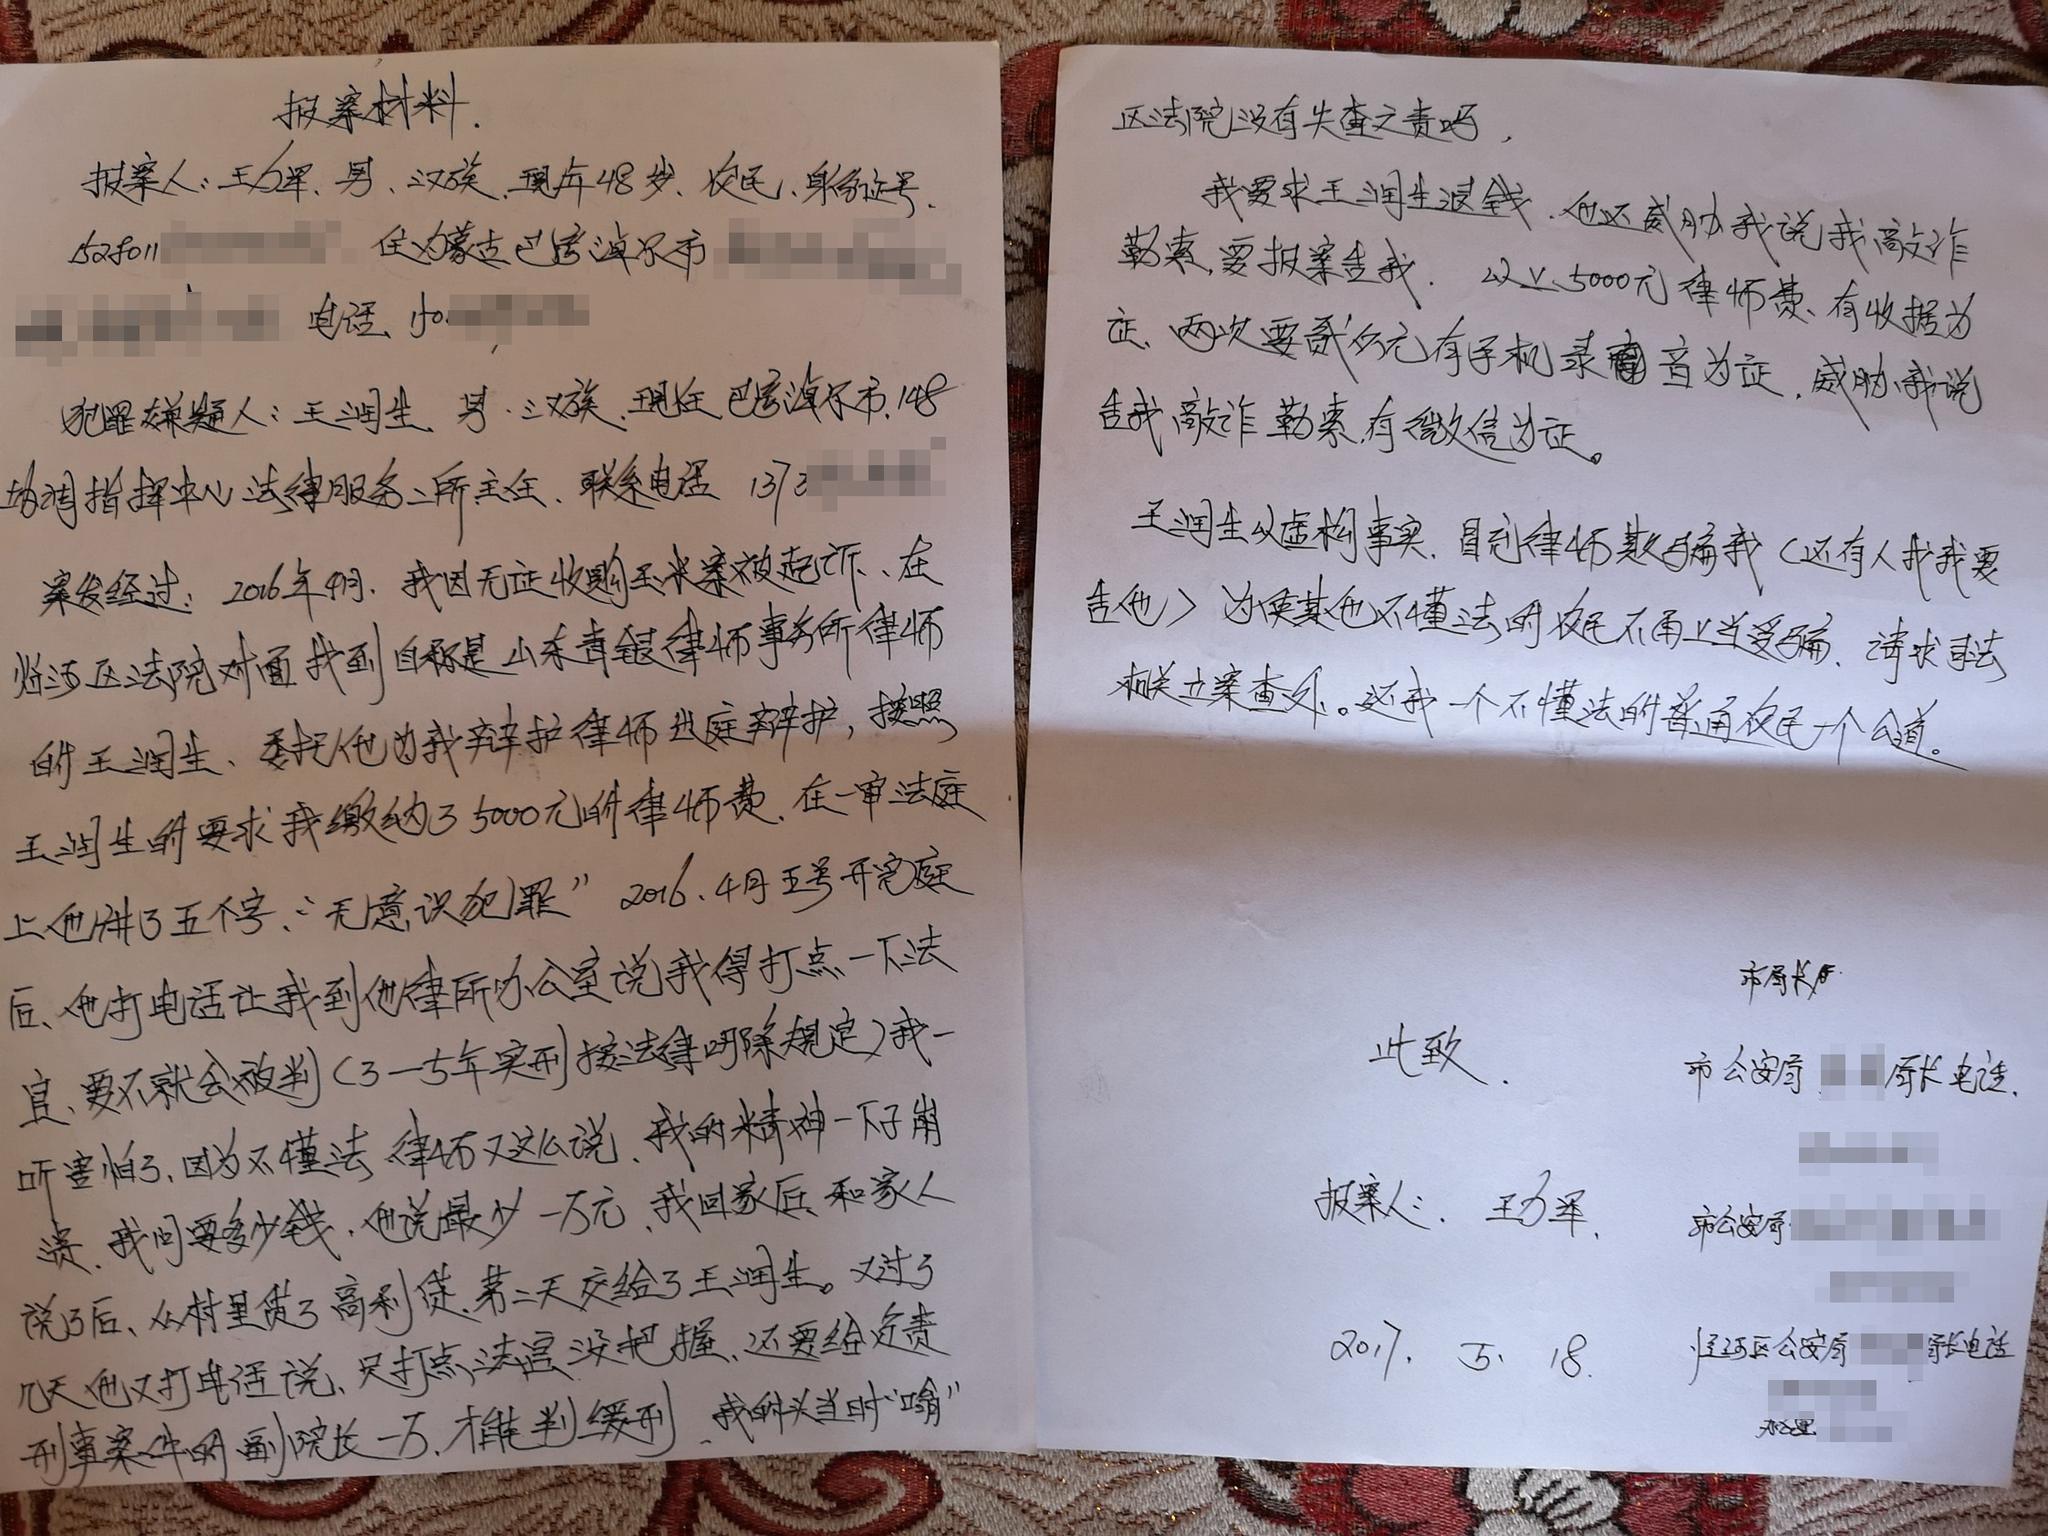 报案材料.
报案人：王力军、男、汉族、现年48岁、农民、身份证号.
152801 住内蒙古巴彦淖尔市
电话、150
犯罪嫌疑人：王润生、男、汉族、现任巴彦淖尔市、148
协调指挥中心法律服务二所主任、联系电话 1373
案发经过：2016年4月、我因无证收购玉米案被起诉、在
临河区法院对面找到自称是山东青银律师事务所律师
的王润生、委托他为我辩护律师出庭辩护，按照
王润生的要求我缴纳了5000元的律师费、在一审法庭
上他讲了五个字、“无意识犯罪” 2016、4月五号开完庭
后、他打电话让我到他律所办公室说我得打点一下法
官、要不就会被判（3—5年实刑按法律 规定）我一
听害怕了、因为不懂法、律师又这么说、我的精神一下子崩
溃、我问要多少钱、他说最少一万元、我回家后、和家人
说了后、从村里贷了高利贷、第二天交给了王润生。又过了
几天他又打电话说、只打点法官没把握、还要给负责
刑事案件的副院长一万、才能判缓刑、我的头当时“嗡”
区法院没有失查之责吗，
我要求王润生退钱、他还威胁我说我敲诈
勒索、要报案告我. 以上、5000元律师费、有收据为
证、两次要贰万元有手机录音为证、威胁我说
告我敲诈勒索、有微信为证。
王润生以虚构事实、冒充律师欺骗我（还有人找我要
告他）为使其他不懂法的农民不再上当受骗、请求司法
机关立案查处。还我一个不懂法的普通农民一个公道。
市局长
此致.
市公安局 局长电话.
报案人：王力军.
市公安局
2017. 5. 18.
临河区公安局 局长电话
办公室